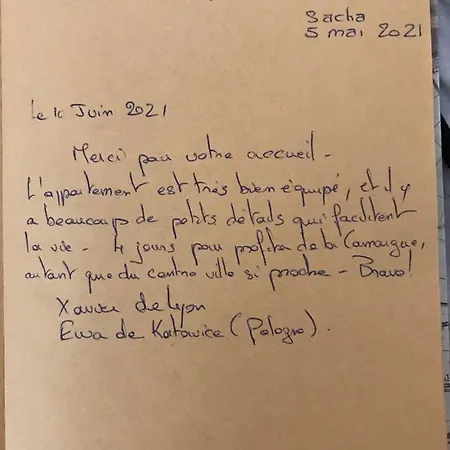 Sacha
5 mai 2021
Le 10 Juin 2021
Merci pour votre accueil -
L'appartement est très bien équipé, et il y
a beaucoup de petits détails qui facilitent
la vie - 4 jours pour profiter de la Camargue,
autant que du centre ville si proche - Bravo!
Xavier de Lyon
Ewa de Katowice (Pologne).